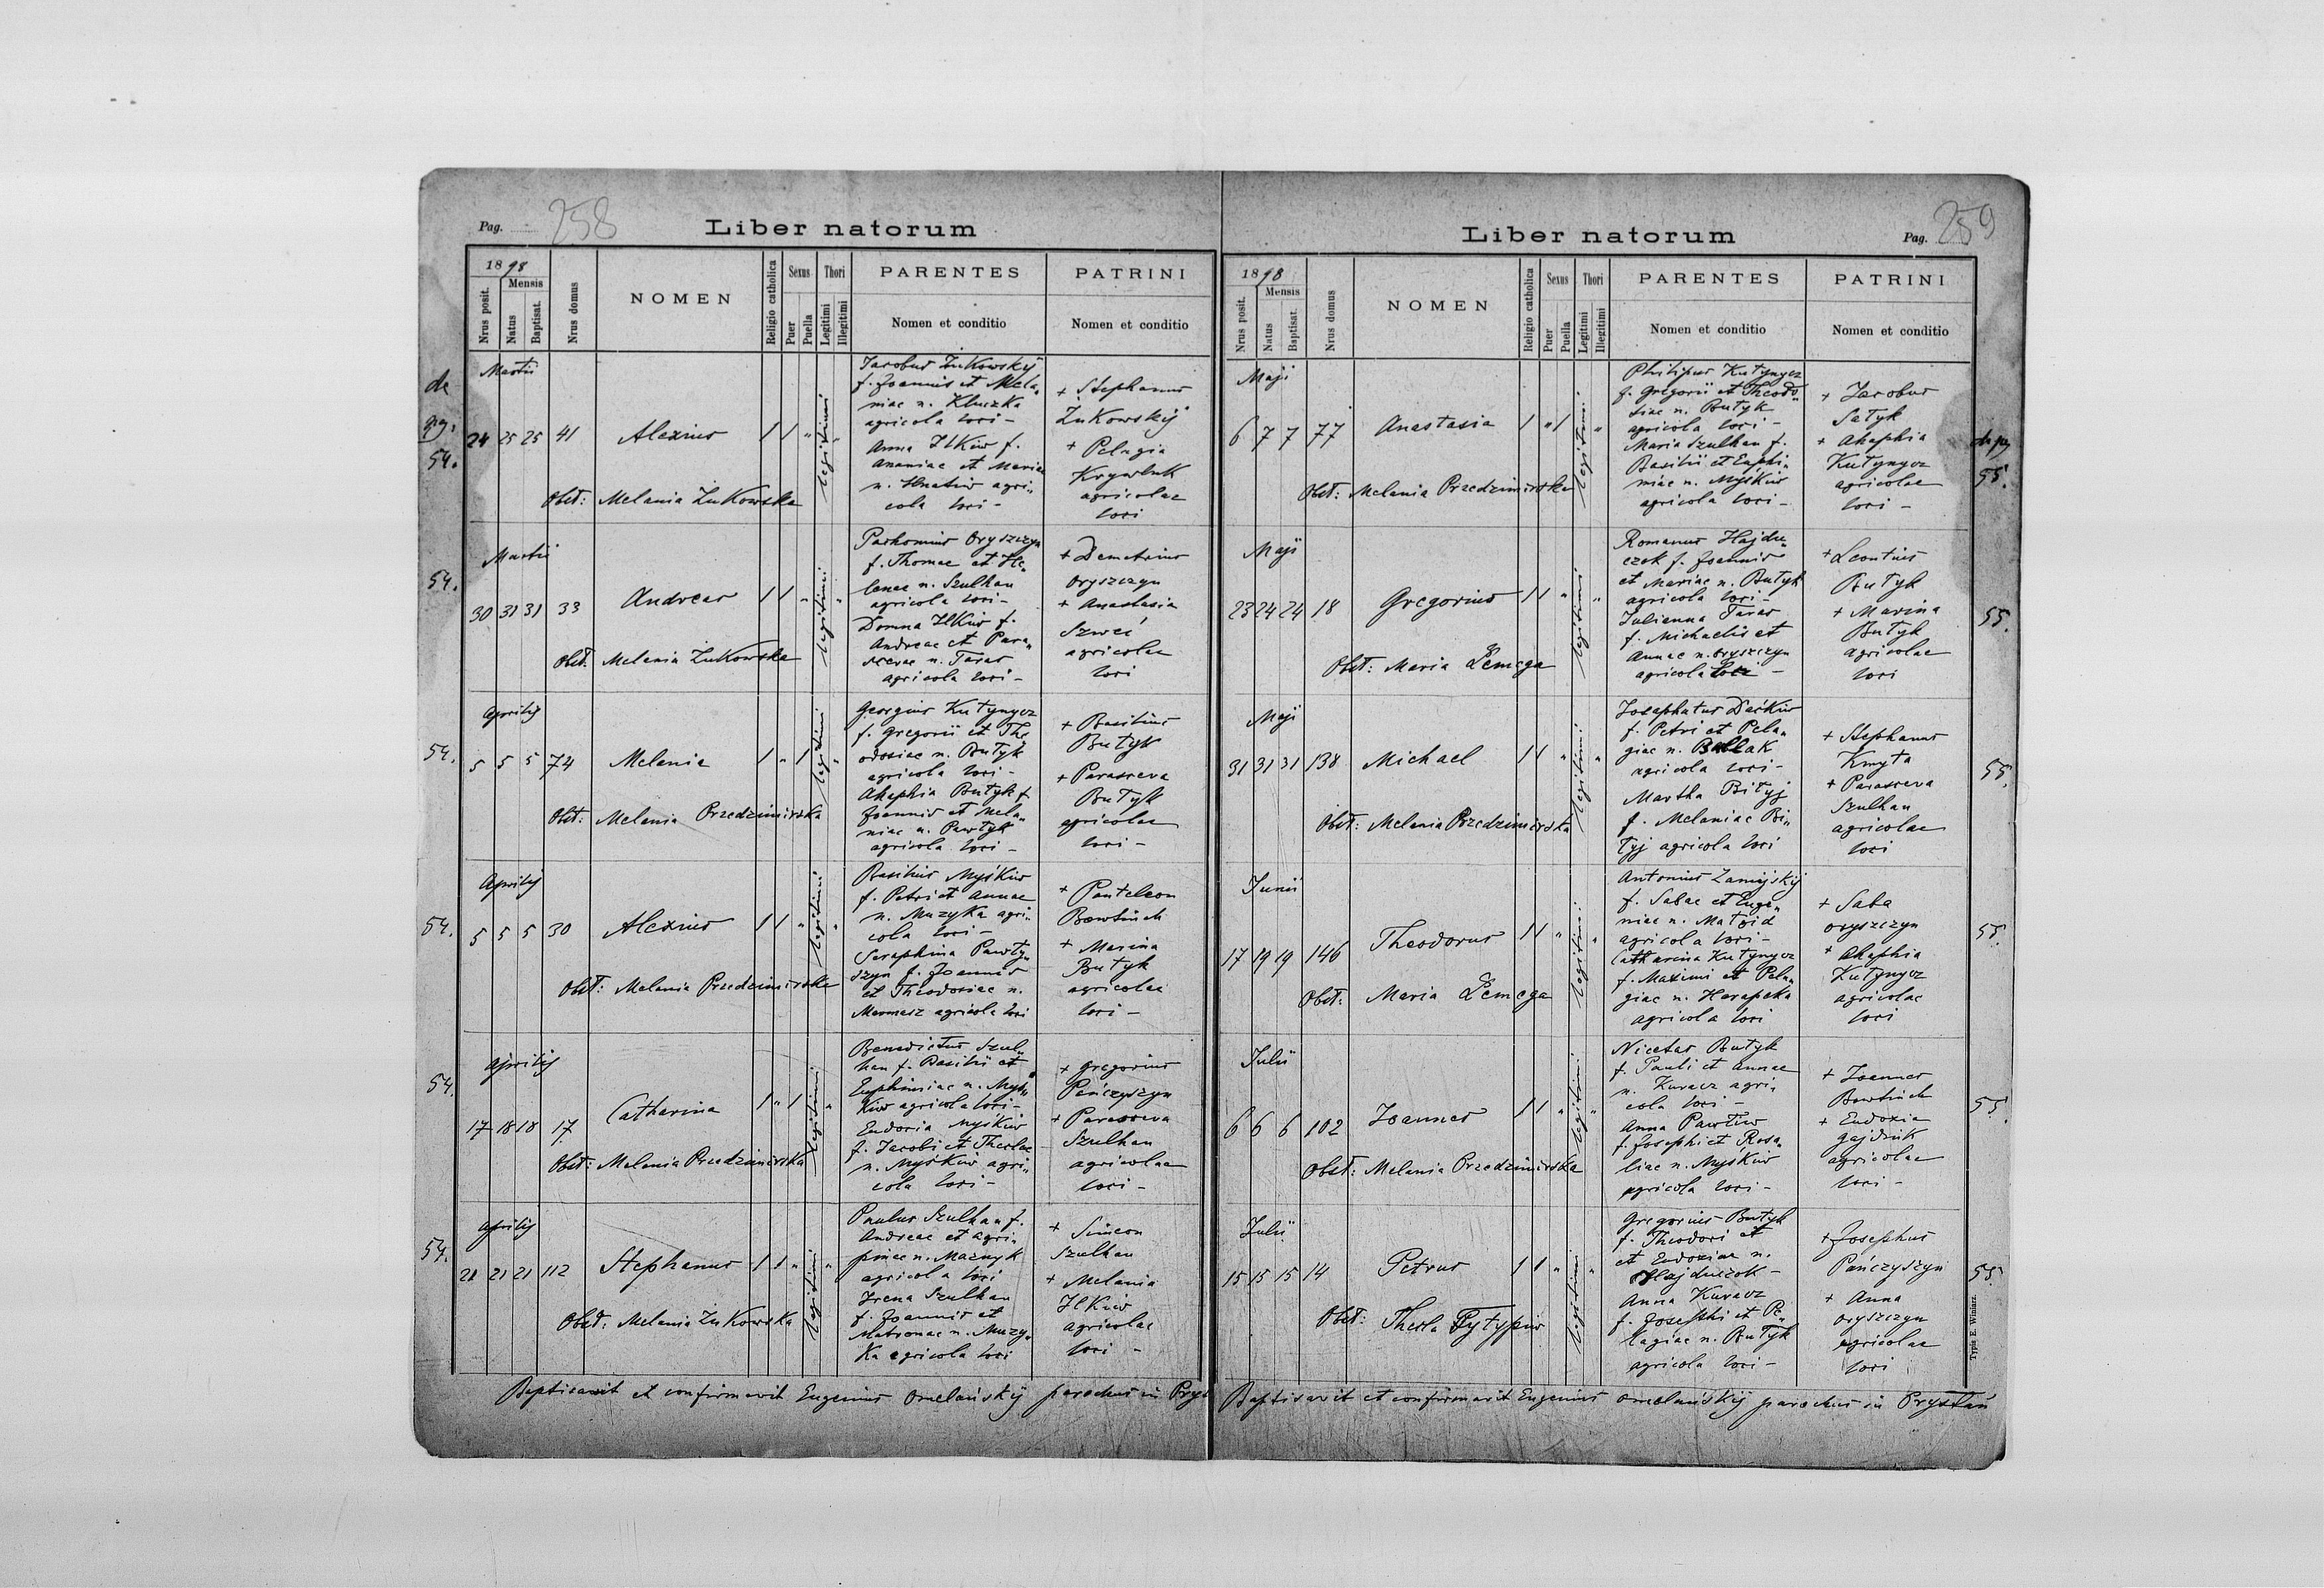 Pag. 258
Liber natorum
1898
Mensis
Nrus posit.
Natus
Baptisat.
Nrus domus
NOMEN
Religio catholica
Sexus
Puer
Puella
Thori
Legitimi
Illegitimi
PARENTES
Nomen et conditio
PATRINI
Nomen et conditio
de
pg.
54.
Martii
24 25 25 41
Alexius
1 1 " legitimi "
Obst: Melania Żukowska
Jacobus Żukowskij
f. Joannis et Mela„
niae n. Kluczka
agricola loci -
Anna Ilkiw f.
Ananiae et Mariae
n. Hnatiw agri„
cola loci -
+ Stephanus
Żukowskij
+ Pelagia
Krywluk
agricolae
loci
54.
Martii
30 31 31 33
Andreas
1 1 " legitimi "
Obst. Melania Żukowska
Pachomius Oryszczyn
f. Thomae et He„
lenae n. Szulhan
agricola loci -
Domna Ilkiw f.
Andreae et Para„
scevae n. Taras
agricola loci -
+ Demetrius
Oryszczyn
+ Anastasia
Szweć
agricolae
loci
54.
Aprilis
5 5 5 74
Melania
1 " 1 legitimi "
Obst: Melania Przedzimirska
Georgius Kutynycz
f. Gregorii et The„
odosiae n. Butyk
agricola loci -
Ahaphia Butyk f.
Joannis et Mela„
niae n. Pawlyk
agricola loci -
+ Basilius
Butyk
+ Parasceva
Butyk
agricolae
loci -
54.
Aprilis
5 5 5 30
Alexius
1 1 " legitimi "
Obst: Melania Przedzimirska
Basilius Myśkiw
f. Petri et Annae
n. Muzyka agri„
cola loci -
Seraphina Pawły„
szyn f. Joannis
et Theodosiae n.
agricola loci
+ Panteleon
+ Marina
Butyk
agricolae
loci -
54.
Aprilis
17 18 18 17
Catharina
1 " 1 legitimi "
Obst: Melania Przedzimirska
Benedictus Szul„
han f. Basilii et
Euphimiae n. Myś„
kiw agricola loci -
Eudoxia Myśkiw
f. Jacobi et Theclae
n. Myśkiw agri„
cola loci -
+ Gregorius
Pańczyszyn
+ Parasceva
Szulhan
agricolae
loci -
54.
Aprilis
21 21 21 112
Stephanus
1 1 " legitimi "
Obst: Melania Żukowska
Paulus Szulhan f.
Andreae et Agri„
pinae n. Maznyk
agricola loci
Irena Szulhan
f. Joannis et
Matronae n. Muzy„
ka agricola loci
+ Simeon
Szulhan
+ Melania
Ilkiw
agricolae
loci -
Baptisavit et confirmavit Eugenius Omelańskij parochus in Pryst
Liber natorum
Pag. 259
1898
Mensis
Nrus posit.
Natus
Baptisat.
Nrus domus
NOMEN
Religio catholica
Sexus
Puer
Puella
Thori
Legitimi
Illegitimi
PARENTES
Nomen et conditio
PATRINI
Nomen et conditio
Maji
6 7 7 77
Anastasia
1 " 1 legitimi "
Obst: Melania Przedzimirska
Philipus Kutynycz
f. Gregorii et Theodo„
siae n. Butyk
agricola loci -
Maria Szulhan f.
Basilii et Euphi„
miae n. Myśkiw
agricola loci -
+ Jacobus
Satyk
+ Ahaphia
Kutynycz
agricolae
loci -
55.
Maji
23 24 24 18
Gregorius
1 1 " legitimi "
Obst: Maria Łemega
Romanus Hajdu„
czok f. Joannis
et Mariae n. Butyk
agricola loci -
Julianna Taras
f. Michaelis et
Annae n. Oryszczyn
agricola loci -
+ Leontius
Butyk
+ Marina
Butyk
agricolae
loci
55.
Maji
31 31 31 138
Michael
1 1 " legitimi "
Obst: Melania Przedzimirska
Josaphatus Dećkiw
f. Petri et Pela„
giae n.
agricola loci -
Martha Bityj
f. Melaniae Bi„
tyj agricola loci
+ Stephanus
Kmyta
+ Parasceva
Szulhan
agricolae
loci
55.
Junii
17 19 19 146
Theodorus
1 1 " legitimi "
Obst: Maria Łemega
Antonius Zamijskij
f. Sabae et Euge„
niae n.
agricola loci -
Catharina Kutynycz
f. Maximi et Pela„
giae n. Harapaka
agricola loci
+ Saba
Oryszczyn
+ Ahaphia
Kutynycz
agricolae
loci
55.
Julii
6 6 6 102
Joannes
1 1 " legitimi "
Obst: Melania Przedzimirska
Nicetas Butyk
f. Pauli et Annae
n. Kuracz agri„
cola loci -
Anna Pawliw
f. Josephi et Rosa„
liae n. Myśkiw
agricola loci -
+ Joannes
+ Eudoxia
Gajdziuk
agricolae
loci -
55.
Julii
15 15 15 14
Petrus
1 1 " legitimi "
Obst: Thecla Fytypiw
Gregorius Butyk
f. Theodori et
et Eudoxiae n.
Hajduczok -
Anna Kuracz
f. Josephi et Pe„
lagiae n. Butyk
agricola loci -
+ Josephus
Pańczyszyn
+ Anna
Oryszczyn
agricolae
loci
55.
Typis E. Winiarz.
Baptisavit et confirmavit Eugenius Omelańskij parochus in Prystań